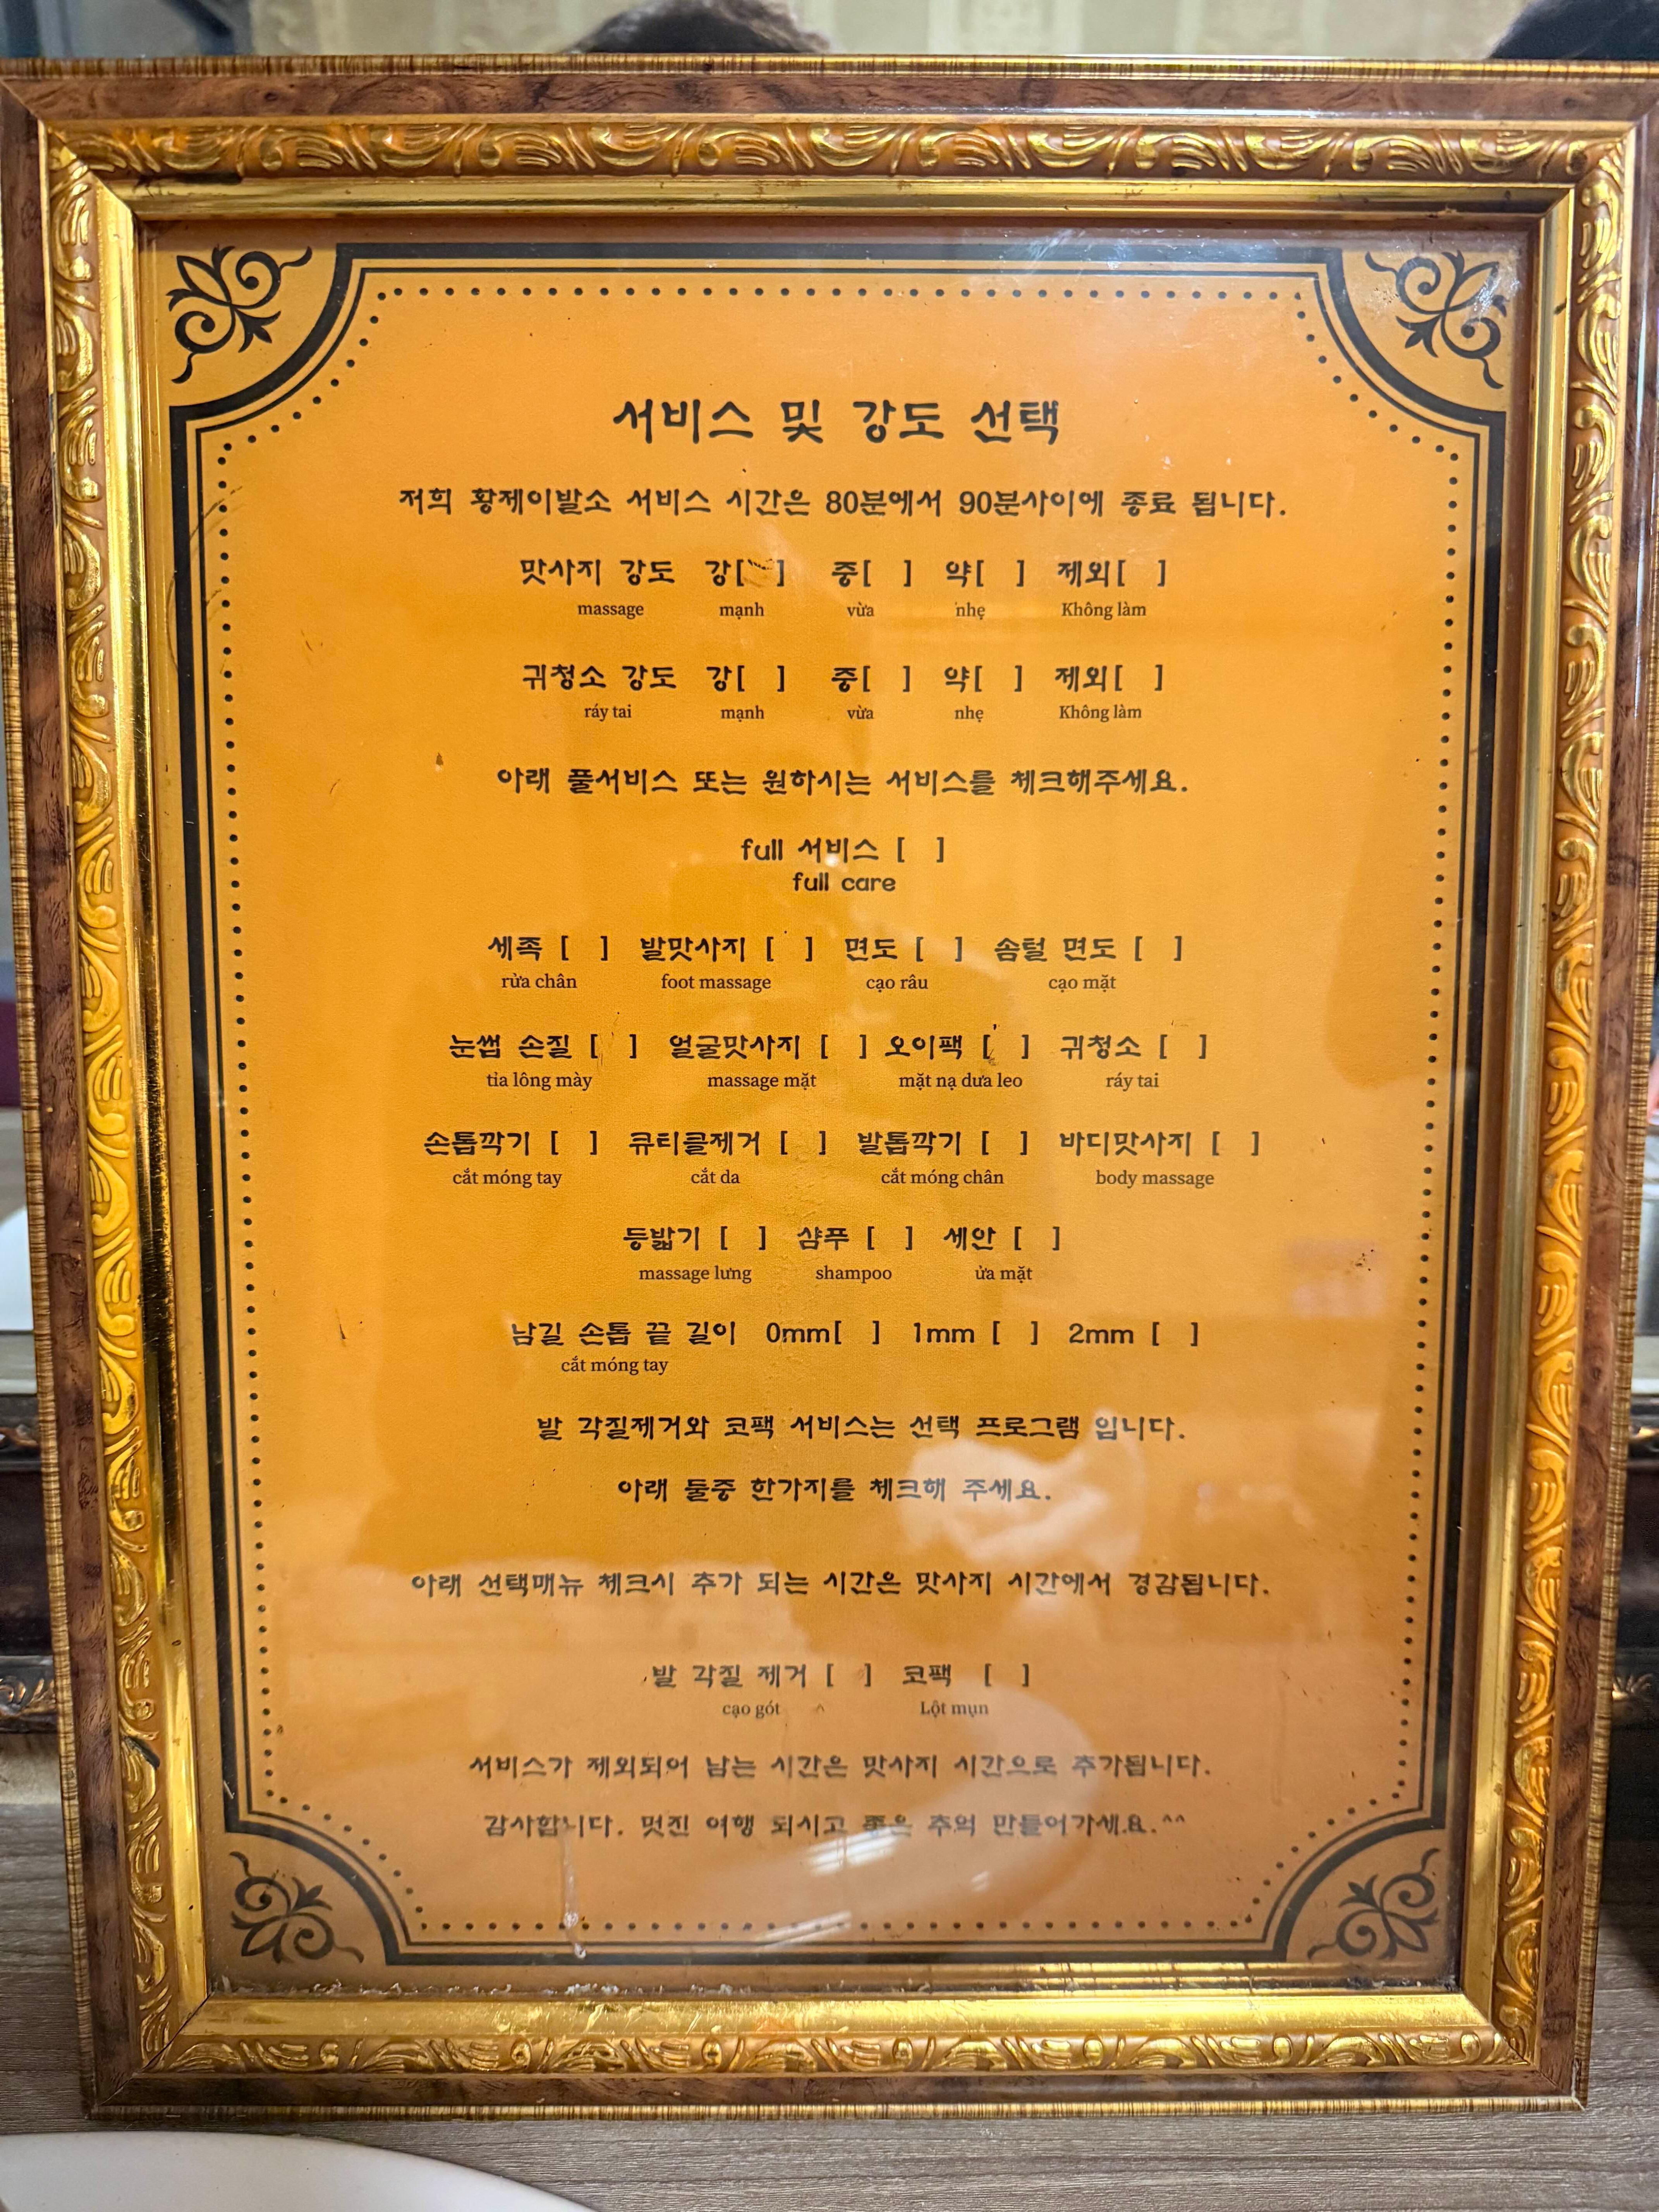 서비스 및 강도 선택
저희 황제이발소 서비스 시간은 80분에서 90분사이에 종료 됩니다.
맛사지 강도 강[ ] 중[ ] 약[ ] 제외[ ]
massage mạnh vừa nhẹ Không làm
귀청소 강도 강[ ] 중[ ] 약[ ] 제외[ ]
ráy tai mạnh vừa nhẹ Không làm
아래 풀서비스 또는 원하시는 서비스를 체크해주세요.
full 서비스 [ ]
full care
세족 [ ] 발맛사지 [ ] 면도 [ ] 솜털 면도 [ ]
rửa chân foot massage cạo râu cạo mặt
눈썹 손질 [ ] 얼굴맛사지 [ ] 오이팩 [ ] 귀청소 [ ]
tỉa lông mày massage mặt mặt nạ dưa leo ráy tai
손톱깍기 [ ] 큐티클제거 [ ] 발톱깍기 [ ] 바디맛사지 [ ]
cắt móng tay cắt da cắt móng chân body massage
등밟기 [ ] 샴푸 [ ] 세안 [ ]
massage lưng shampoo ửa mặt
남길 손톱 끝 길이 0mm[ ] 1mm [ ] 2mm [ ]
cắt móng tay
발 각질제거와 코팩 서비스는 선택 프로그램 입니다.
아래 둘중 한가지를 체크해 주세요.
아래 선택매뉴 체크시 추가 되는 시간은 맛사지 시간에서 경감됩니다.
발 각질 제거 [ ] 코팩 [ ]
cạo gót Lột mụn
서비스가 제외되어 남는 시간은 맛사지 시간으로 추가됩니다.
감사합니다. 멋진 여행 되시고 좋은 추억 만들어가세요.^^